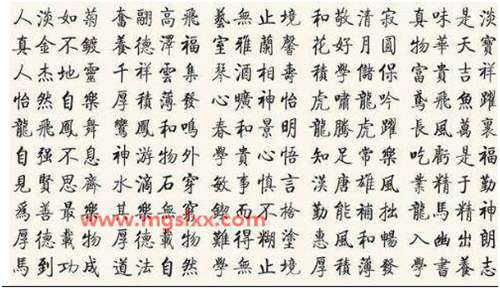 人淡如菊 奮翮高飛 藝無止境 和敬清寂 真味是淡
真金不鍍 養德澤福 室雅蘭馨 花好月圓 物華天寶
人杰地靈 千祥雲集 琴酒相壽 積學儲保 富貴吉祥
怡然自樂 厚積薄發 心曠神怡 虎嘯龍吟 鳶飛魚躍
龍飛鳳舞 鸞鳳和鳴 春和景明 龍騰虎躍 長風萬裏
自强不息 神游物外 學貴心悟 知足常樂 吃虧是福
見賢思齊 水滴石穿 敏事慎言 漢唐雄風 業精于勤
爲善最樂 其樂無窮 而不 勤能補拙 龍馬精神
www.mgslxx.com
厚德載物 厚德載物 難得糊塗 惠風和暢 入幽出朗
馬到功成 道法自然 學無止境 厚積薄發 學書養志